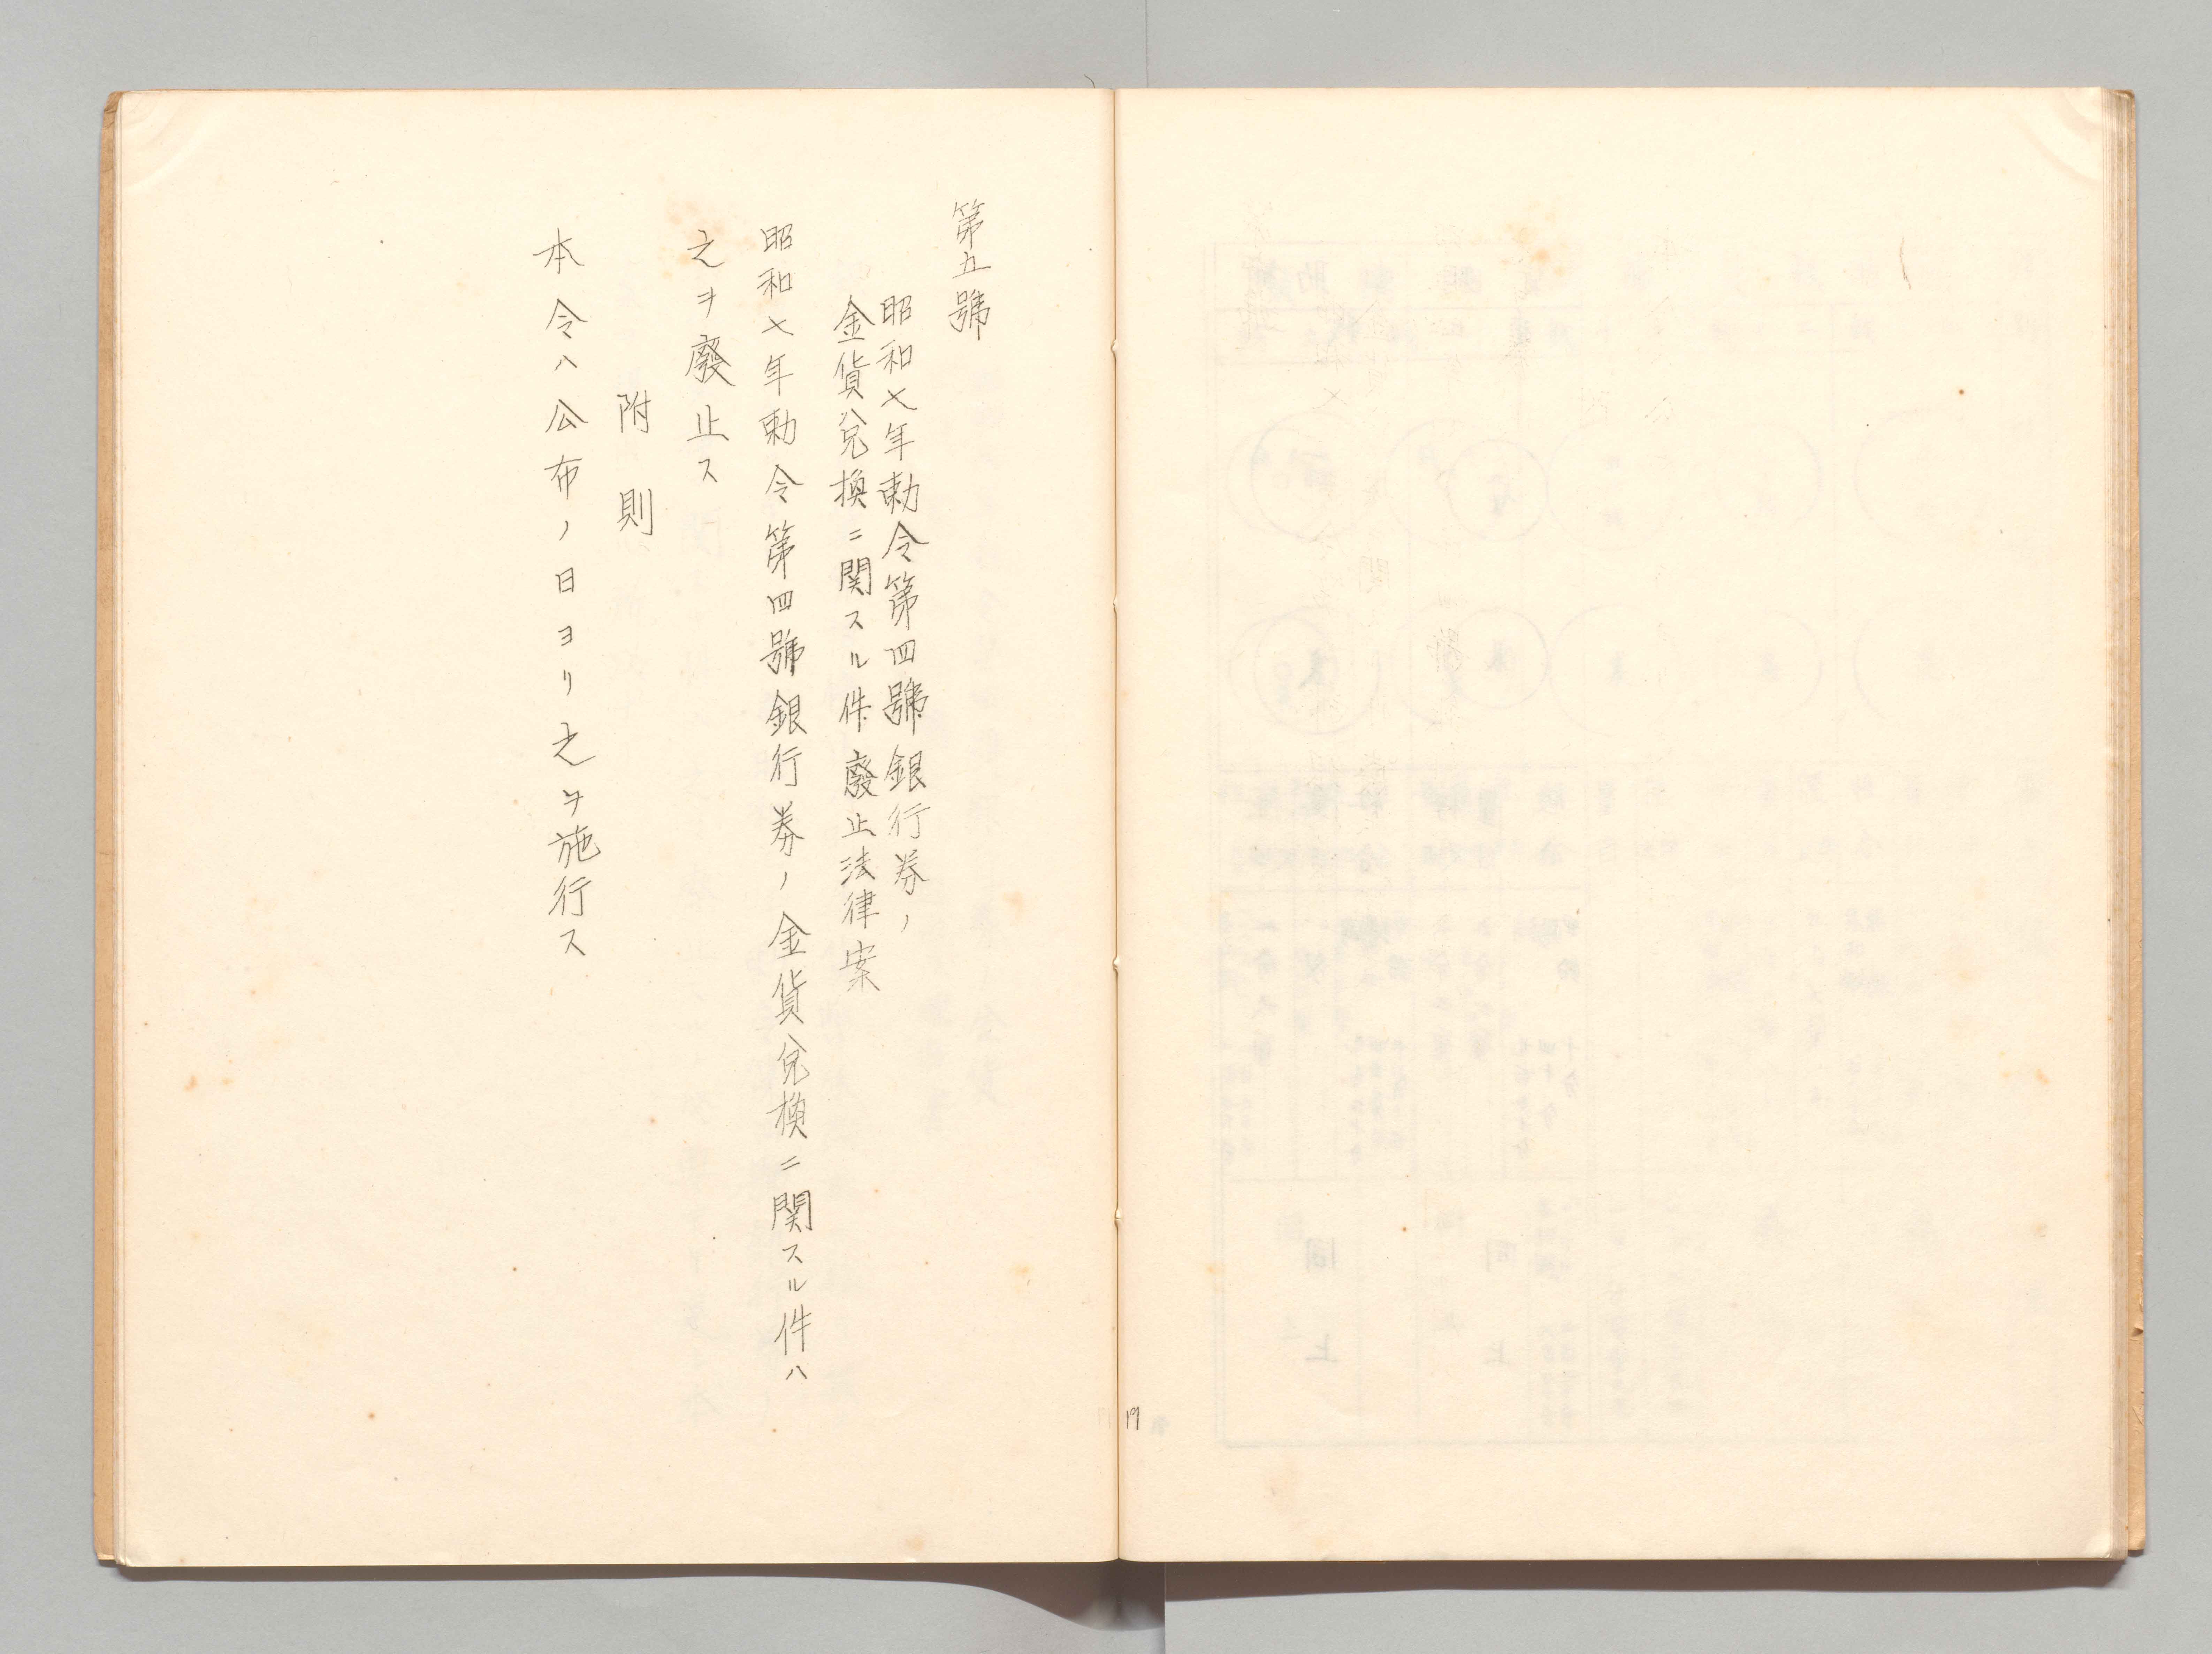 第五號
昭和七年勅令第四號銀行券ノ
金貨兌換ニ関スル件廢止法律案
昭和七年勅令第四號銀行券ノ金貨兌換ニ関スル件ハ
之ヲ廢止ス
附則
本令ハ公布ノ日ヨリ之ヲ施行ス
19